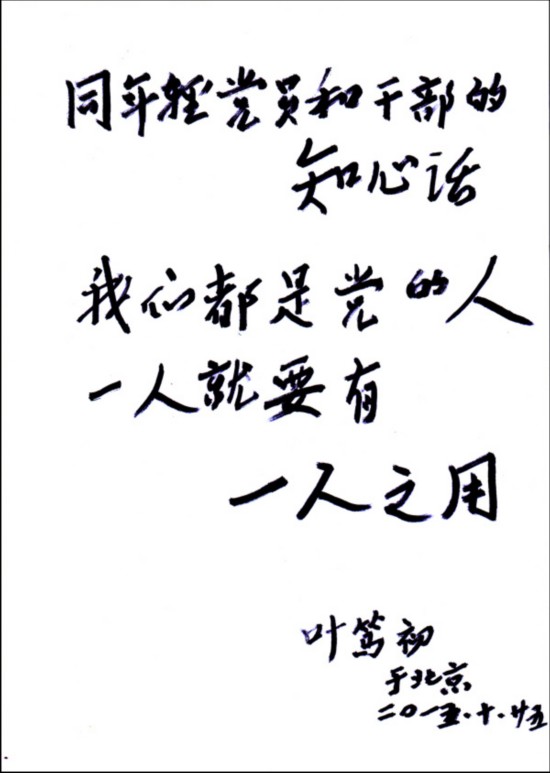 同年轻党员和干部的
知心话
我们都是党的人
一人就要有
一人之用
叶笃初
于北京
二〇一五.十.廿五